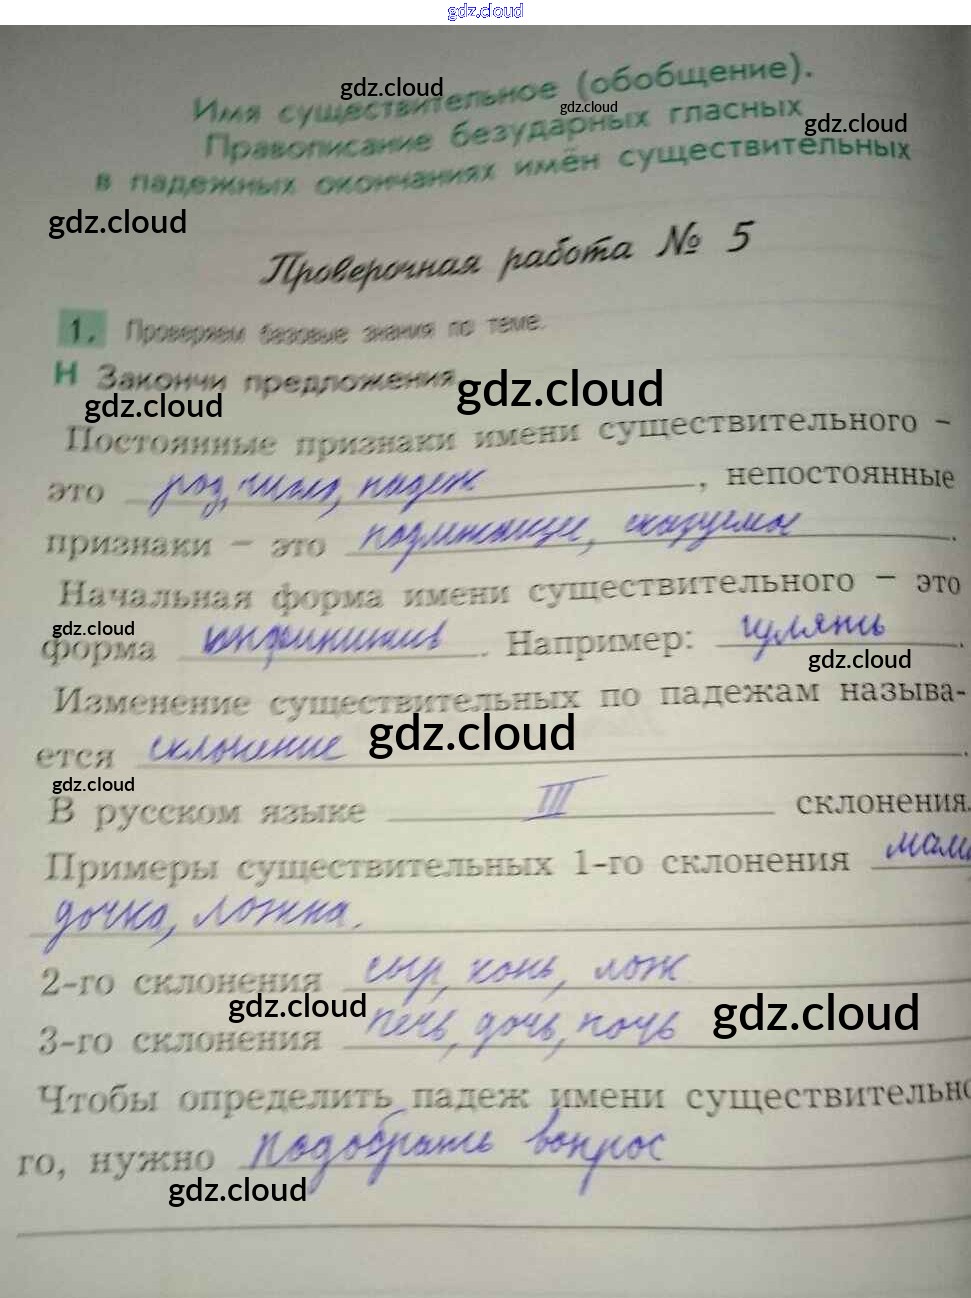 gdz.cloud
gdz.cloud
Имя существительное (обобщение).
gdz.cloud
Правописание безударных гласных
gdz.cloud
в падежных окончаниях имён существительных
gdz.cloud
Проверочная работа № 5
1. Проверяем базовые знания по теме.
Н Закончи предложения.
gdz.cloud
gdz.cloud
Постоянные признаки имени существительного –
это род, число, падеж, непостоянные
признаки – это подлежащие, сказуемое.
Начальная форма имени существительного – это
gdz.cloud
форма инфинитив. Например: гулять.
gdz.cloud
Изменение существительных по падежам называ-
ется склонение.
gdz.cloud
gdz.cloud
В русском языке III склонения.
Примеры существительных 1-го склонения
дочка,
2-го склонения сыр, конь,
gdz.cloud
gdz.cloud
3-го склонения печь, дочь, ночь
Чтобы определить падеж имени существительно
го, нужно подобрать вопрос
gdz.cloud